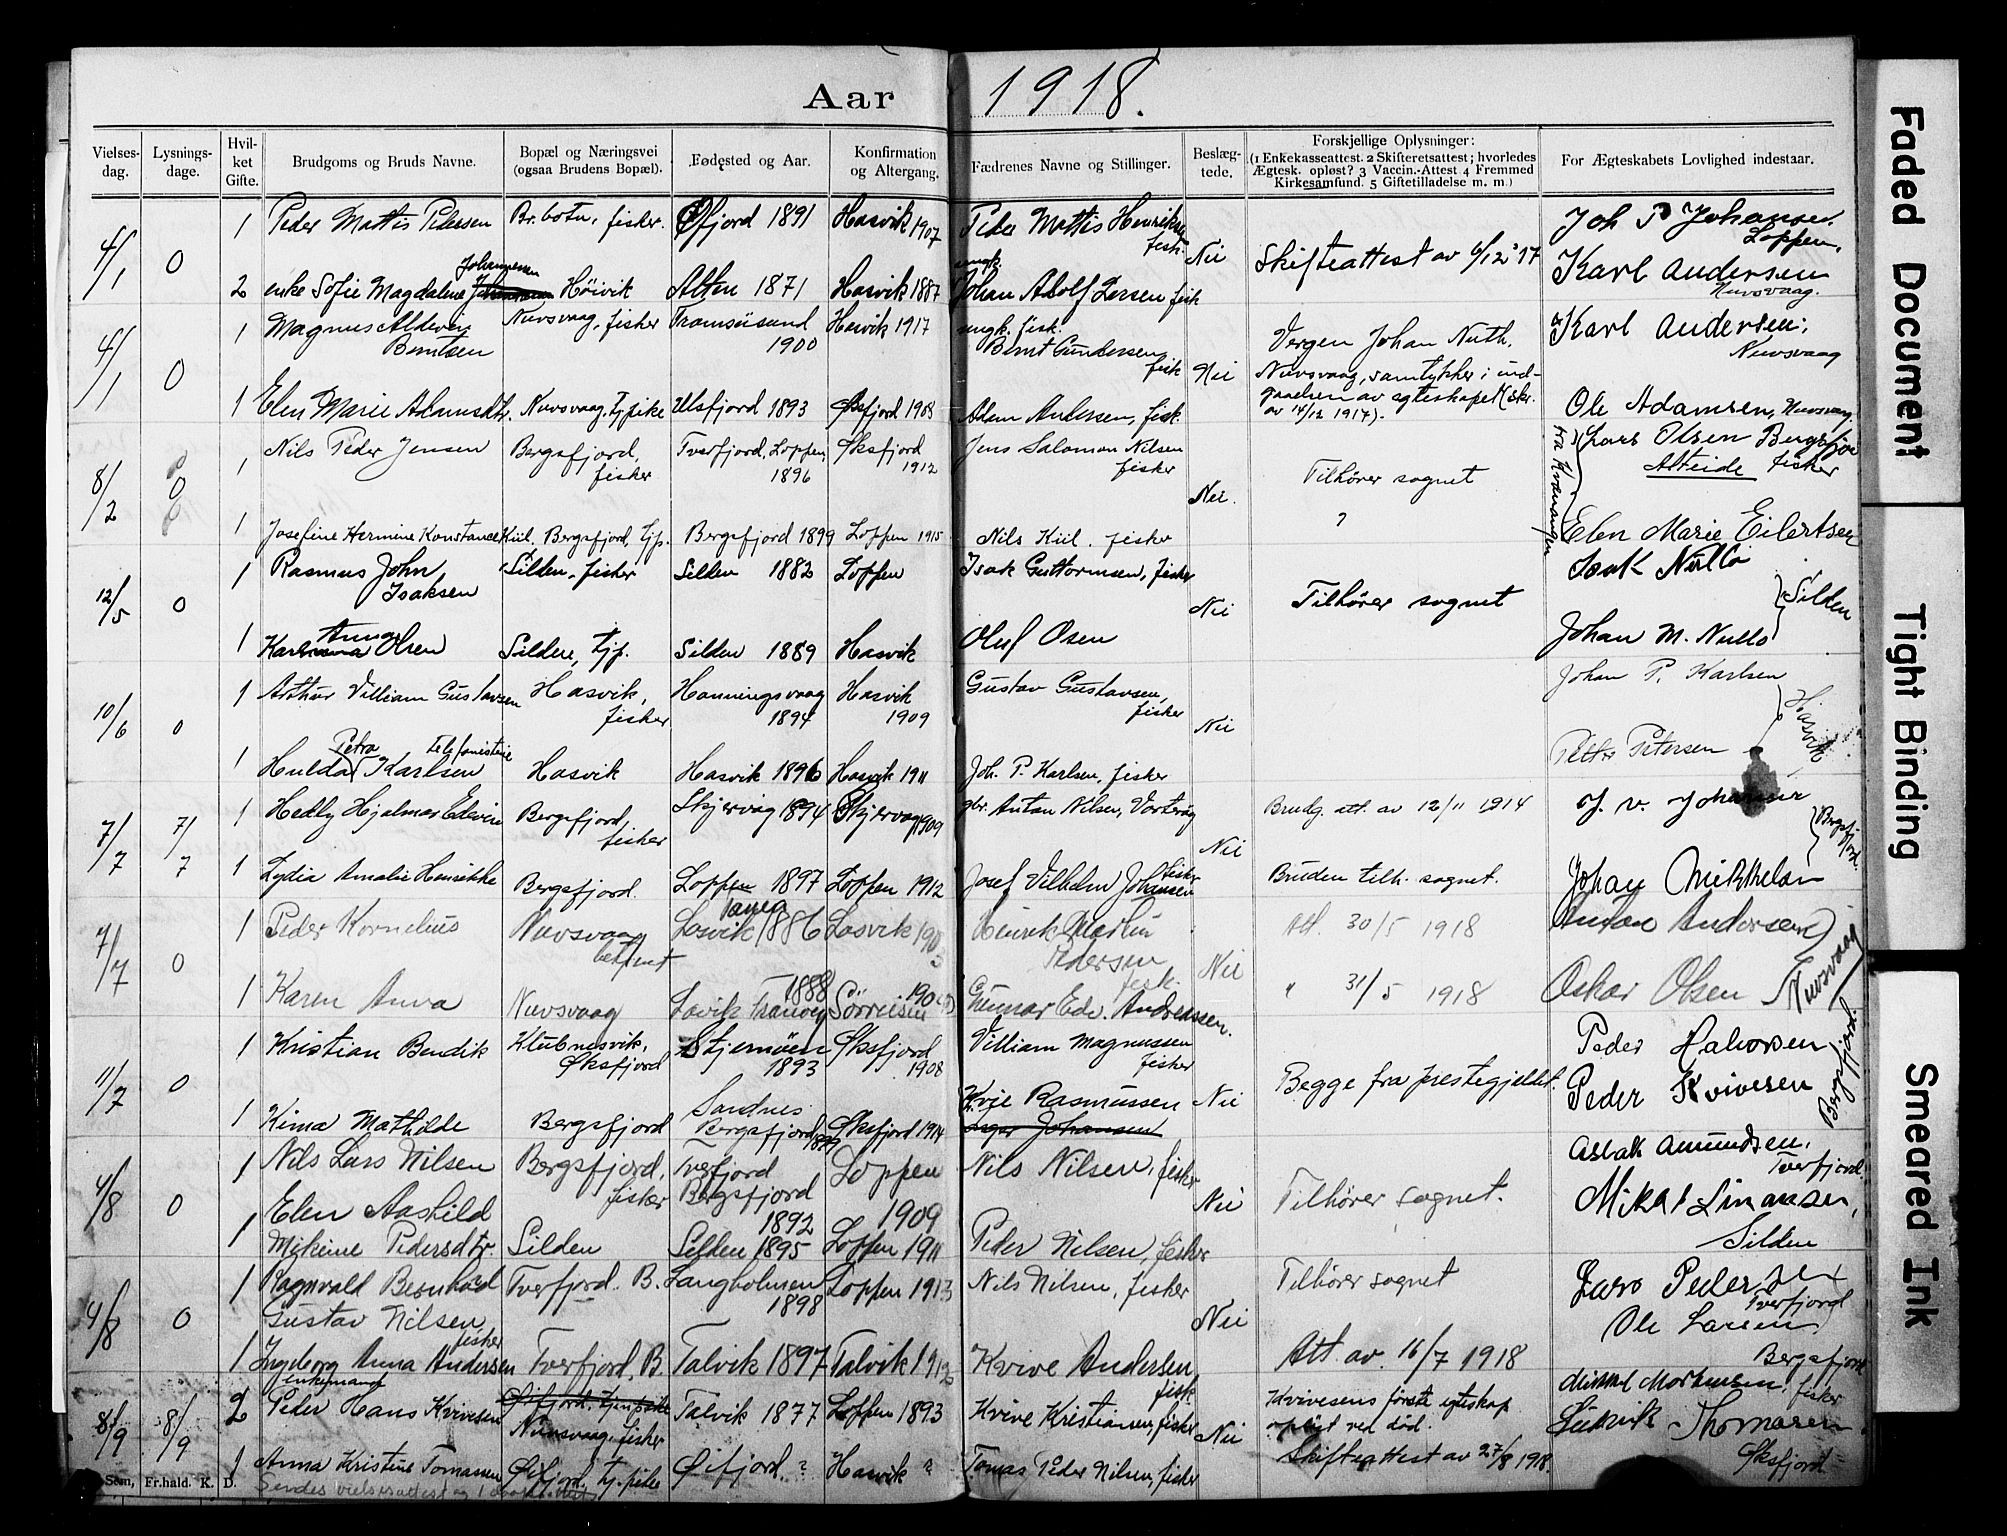 Aar 1918.
Vielses-dag. Lysnings-dage. Hvil-ket Gifte. Brudgoms og Bruds Navne. Bopæl og Næringsvei (ogsaa Brudens Bopæl). Fødested og Aar. Konfirmation og Altergang. Fædrenes Navne og Stillinger. Beslæg-tede. Forskjellige Oplysninger: (1 Enkekasseattest. 2 Skifteretsattest; hvorledes Ægtesk. opløst? 3 Vaccin.-Attest 4 Fremmed Kirkesamfund. 5 Giftetilladelse m. m.) For Ægteskabets Lovlighed indestaar.
4/1 0 1 Peder Mattis Pedersen Br.botn, fisker. Øfjord 1891 Hasvik 1907 Peder Mattis Henriksen fisk. Nei Skifteattest av 6/12 '17 Joh P Johansen Loppen.
2 enke Sofie Magdalene Johannesen Høivik Alten 1871 Hasvik 1887 ungk. Johan Adolf Larsen fisk Karl Andersen Nuvsvaag.
4/1 0 1 Magnus Aldevin Berntsen Nuvsvaag, fisker Tromsøsund 1900 Hasvik 1917 ungk. fisk. Bernt Gundersen fisk Nei Vergen Johan Nuth, Nuvsvaag, samtykker i ind-gaaelsen av egteskapet (skr. av 14/12 1917). Karl Andersen, Nuvsvaag
1 Elen Marie Adamsdtr. Nuvsvaag, tj.pike Ulsfjord 1893 Øksfjord 1908 Adam Andersen, fisk. Ole Adamsen, Nuvsvaag.
8/2 0 1 Nils Peder Jensen Bergsfjord, fisker Tverfjord, Loppen, 1896 Øksfjord 1912 Jens Salamon Nilsen fisker Nei. Tilhører sognet Lars Olsen Bergsfjor Alteide fisker
1 Josefine Hermine Konstance Kiil, Bergsfjord, tjp. Bergsfjord 1899 Loppen 1915 Nils Kiil, fisker ? fra Kvænangen Elen Marie Eilertsen
12/5 0 1 Rasmus John Isaksen Silden, fisker Silden 1882 Loppen Isak Guttormsen, fisker Nei Tilhører sognet Isak Nullo Silden
1 Anna Olsen Silden, tjp. Silden 1889 Hasvik Oluf Osen Johan M. Nullo
10/6 0 1 Arthur Villiam Gustavsen Hasvik, fisker Honningsvaag 1894 Hasvik 1909 Gustav Gustavsen, fisker Nei Johan P. Karlsen Hasvik
1 Hulda Petra Karlsen telefonistinne Hasvik Hasvik 1896 Hasvik 1911 Joh. P. Karlsen, fisker Petter Petersen
7/7 7/7 1 Hedly Hjalmar Edvin Bergsfjord, fisker Skjervøy 1894 Skjervøy 1909 gbr. Anton Nilsen, Vorterøy Nei Brudg. att. av 12/11 1914 J. V. Johansen Bergsfjord
1 Lydia Amalie Henrikke Bergsfjord. Loppen 1897 Loppen 1912 Josef Vilhelm Johansen fisker Bruden tilh. sognet. Johan Mikkelsen
7/7 0 1 Peder Kornelius Nuvsvaag Lasvik 1886 Lasvik Henrik Martin Pedersen fisk. Nei Att. 30/5 1918 Anton Andersen Nuvsvaag
1 Karen Anna Nuvsvaag Lavik Tranøy 1888 Sørreisen Gunnar Edv. Andreassen. " 31/5 1918 Oskar Olsen
11/7 0 1 Kristian Bendik Klubnesvik, Øksfjord Stjernøen 1893 Øksfjord 1908 Villiam Magnussen fisker Nei Begge fra prestegjeldet. Peder Halvorsen Bergsfjord.
1 Kima Mathilde Bergsfjord Sandnes Bergsfjord Øksfjord 1914 Kvje Rasmussen Peder Kvivesen
4/8 0 1 Nils Lars Nilsen Bergsfjord, fisker Tverfjord Bergsfjord 1892 Loppen 1909 Nils Nilsen, fisker Nei Tilhører sognet. Aslak Amundsen, Tverfjord
1 Elen Aashild Mikeine Pedersdtr. Silden Silden 1895 Loppen 1911 Peder Nilsen, fisker Mikal Simonsen, Silden
4/8 0 1 Ragnvald Bernhard Gustav Nilsen, fisker Tverfjord. B. Langholmen 1898 Loppen 1913 Nils Nilsen, fisker Nei Tilhører sognet Lars Pedersen Tverfjord
1 Ingeborg Anna Andersen Tverfjord, B. Talvik 1897 Talvik 1912 Kvive Andersen fisk. Att. av. 16/7 1918 Ole Larsen Bergsfjord
8/9 8/9 2 enkemand Peder Hans Kvivesen Øifjord, tjenpike Nuvsvaag, fisker Talvik 1877 Loppen 1893 Kvive Kristiansen, fisker Nei Kvivesens første egteskap opløst ved død. Mikkel Mortensen, fisker
1 Anna Kristine Tomassen Øifjord, tj. pike Øifjord ? Hasvik ? Tomas Peder Nilsen, fisker Skifteattest av 27/8 1918. Ludvik Thomasen Øksfjord
Sem, Fr.hald. K. D.
Sendes vielsesattest og
Faded Document
Tight Binding
Smeared Ink